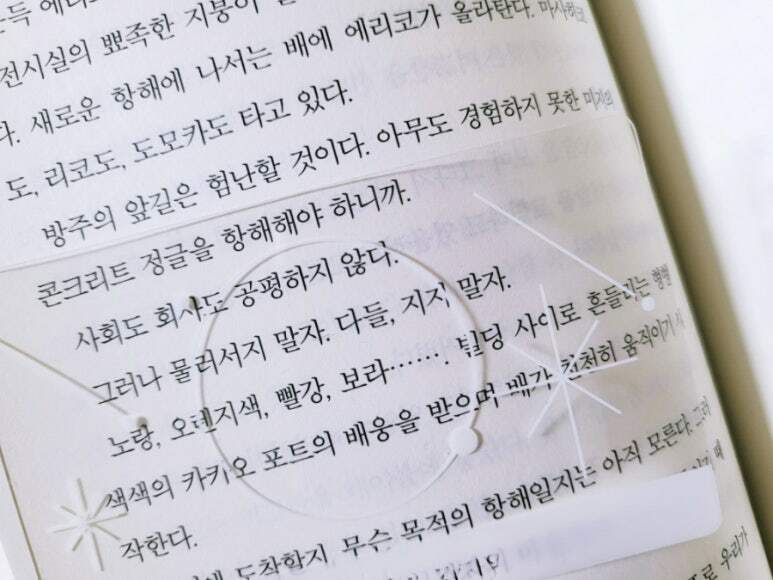 전시실의 뾰족한 지붕이
배에 에리코가 올라탄다. 마사히코
다. 새로운 항해에 나서는
도, 리코도, 도모카도 타고 있다.
방주의 앞길은 험난할 것이다. 아무도 경험하지 못한 미지의
콘크리트 정글을 항해해야 하니까.
사회도 회사도 공평하지 않다.
그러나 물러서지 말자. 다들, 지지 말자.
노랑, 오렌지색, 빨강, 보라……. 빌딩 사이로 흔들리는 형형
색색의 카카오 포트의 배웅을 받으며 배가 천천히 움직이기 시
작한다.
도착할지 무슨 목적의 항해일지는 아직 모른다. 그러
우리가